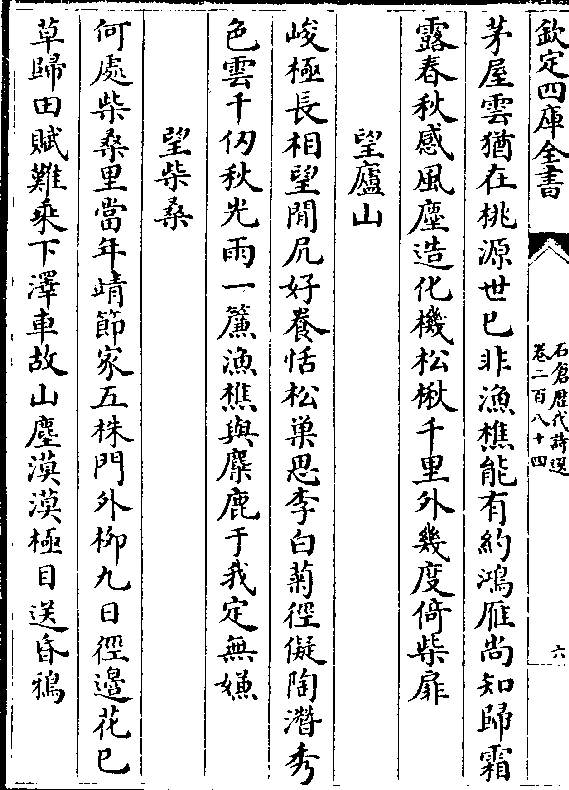 欽定四庫全書
石倉歴代詩選
卷二百八十四
六
茅屋雲猶在桃源世已非漁樵能有約鴻雁尚知歸霜
露春秋感風塵造化機松楸千里外幾度倚柴扉
望廬山
峻極長相望閒凥好養恬松巢思李白菊徑儗陶潛秀
色雲千仞秋光雨一簾漁樵與麋鹿于我定無嫌
望柴桑
何處柴桑里當年靖節家五株門外柳九日徑邊花已
草歸田賦難乘下澤車故山塵漠漠極目送昏鴉